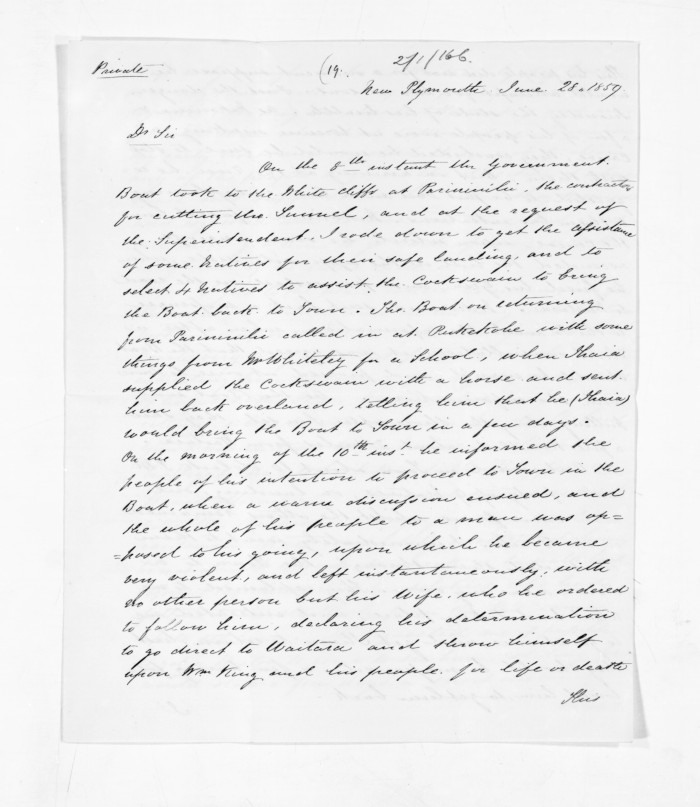 Private
(19.
2/1/166.
New Plymouth. June 28. 1859
Dr Sir
On the 8th instant the Government
Boat took to the White Cliffs at Parininihi, the contractor
for cutting the Tunnel, and at the request of
the Superintendent, I rode down to get the assistance
of some Natives for their safe landing, and to
select 4 Natives to assist the Cockswain to bring
the Boat back to Town. The Boat on returning
from Parininihi called in at Pukekohe with some
things from Mr Whiteley for a School, when Ihaia
supplied the Cockswain with a horse and sent
him back overland, telling him that he (Ihaia)
would bring the Boat to Town in a few days.
On the morning of the 10th inst. he informed the
people of his intention to proceed to Town in the
Boat, when a warm discussion ensued, and
the whole of his people to a man was op=
=posed to his going, upon which he became
very violent, and left instantaneously, with
no other person but his Wife, who he ordered
to follow him, declaring his determination
to go direct to Waitara and throw himself
upon Wm King and his people for life or death
This